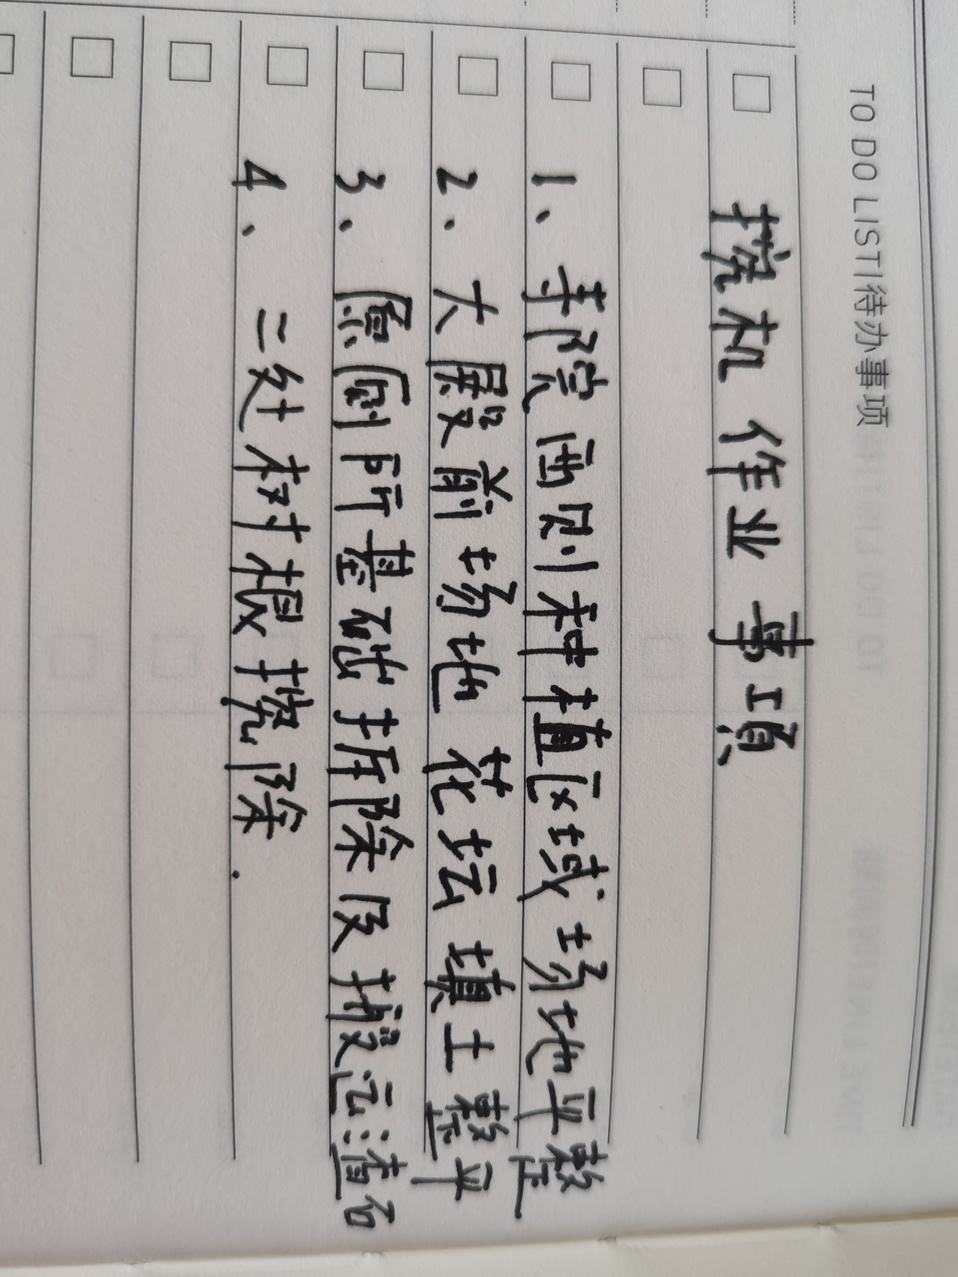 TO DO LIST|待办事项
挖机作业事项
1、寺院西则种植区域场地平整
2、大殿前场地花坛填土整平
3、原厕所基础拆除及搬运渣石
4、二处树根挖除.